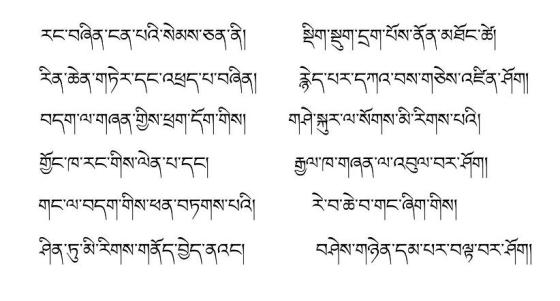 རང་བཞིན་ངན་པའི་སེམས་ཅན་ནི། སྡིག་སྡུག་དྲག་པོས་ནོན་མཐོང་ཚེ།
རིན་ཆེན་གཏེར་དང་འཕྲད་པ་བཞིན། རྙེད་པར་དཀའ་བས་གཅེས་འཛིན་ཤོག།
བདག་ལ་གཞན་གྱིས་ཕྲག་དོག་གིས། གཤེ་སྐུར་ལ་སོགས་མི་རིགས་པའི།
གྱོང་ཁ་རང་གིས་ལེན་པ་དང༌། རྒྱལ་ཁ་གཞན་ལ་འབུལ་བར་ཤོག།
གང་ལ་བདག་གིས་ཕན་བཏགས་པའི། རེ་བ་ཆེ་བ་གང་ཞིག་གིས།
ཤིན་ཏུ་མི་རིགས་གནོད་བྱེད་ནའང༌། བཤེས་གཉེན་དམ་པར་བལྟ་བར་ཤོག།